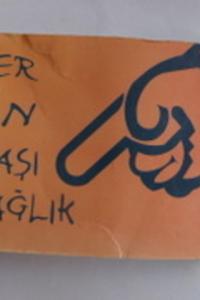 ER
N
AŞI
AĞLIK